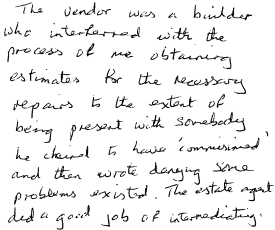 The vendor was a builder
who interferred with the
process of me obtaining
estimates for the necessary
repairs to the extent of
being present with somebody
he claimed to have 'commissioned'
and then wrote denying some
problems existed. The estate agent
did a good job of intermediating.